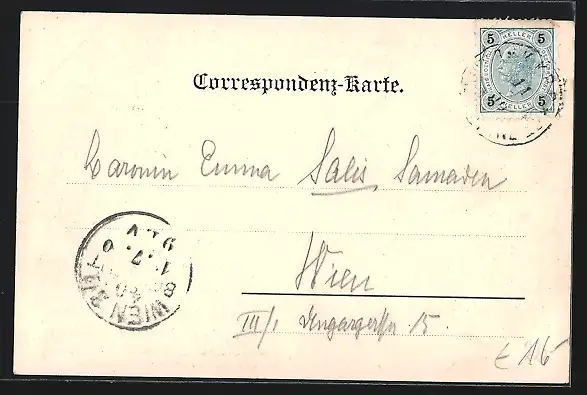 5 HELLER 5
5 HELLER 5
Correspondenz-Karte.
Baronin Emma Salis Samaden
Wien
III/1 Ungargasse 15.
WIEN 3/1
€ 16